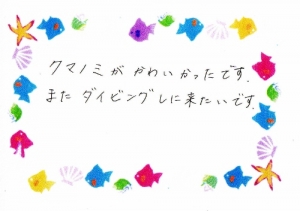 クマノミが かわいかったです.
また ダイビングしに来たいです.